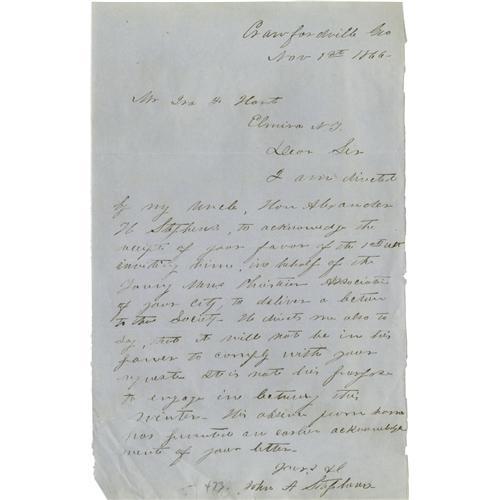 Crawfordville Geo
Nov 12th 1866
Mr Ira F Hart
Elmira N.Y.
Dear Sir
I am directed
by my Uncle, Hon Alexander
H Stephens, to acknowledge the
receipt of your favor of the
inviting him, in behalf of the
Young Mens Christian Association
of your City, to deliver a lecture
to the Society. He directs me also to
say, that it will not be in his
power to comply with your
request. It is not his purpose
to engage in lecturing this
Winter. His absence from home
has prevented an earlier acknowledge
ment of your letter.
Yours &c
John A Stephens